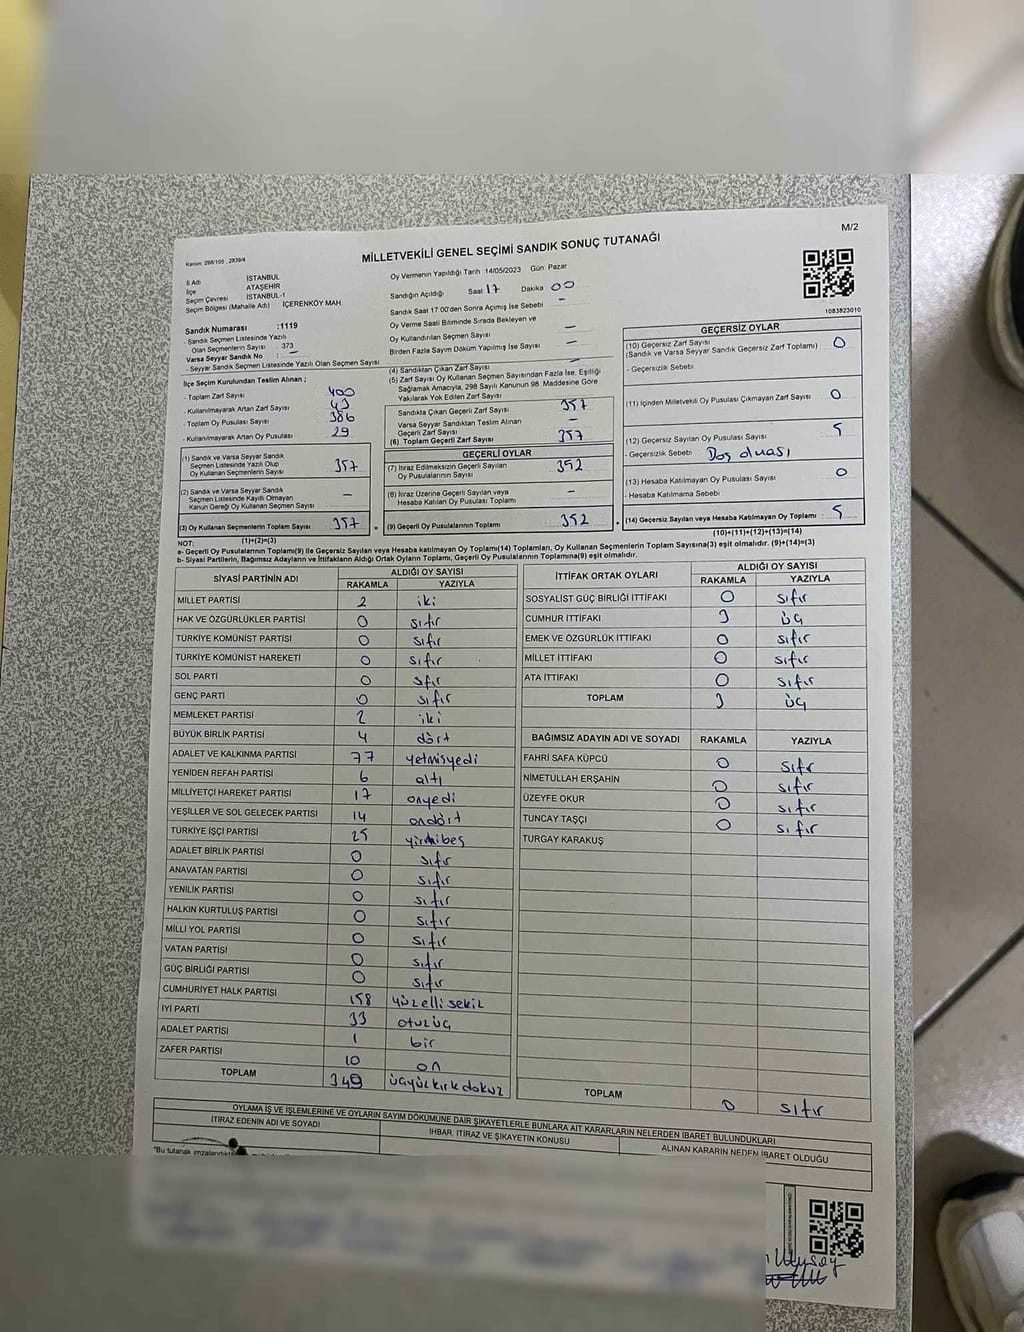 M/2
Kanun: 298/105 , 2839/4
MİLLETVEKİLİ GENEL SEÇİMİ SANDIK SONUÇ TUTANAĞI
İl Adı İSTANBUL
İlçe ATAŞEHİR
Seçim Çevresi İSTANBUL-1
Seçim Bölgesi (Mahalle Adı) İÇERENKÖY MAH.
Sandık Numarası :1119
- Sandık Seçmen Listesinde Yazılı
Olan Seçmenlerin Sayısı : 373
Varsa Seyyar Sandık No : –
- Seyyar Sandık Seçmen Listesinde Yazılı Olan Seçmen Sayısı
İlçe Seçim Kurulundan Teslim Alınan ;
- Toplam Zarf Sayısı 400
- Kullanılmayarak Artan Zarf Sayısı 43
- Toplam Oy Pusulası Sayısı 386
- Kullanılmayarak Artan Oy Pusulası 29
(1) Sandık ve Varsa Seyyar Sandık
Seçmen Listesinde Yazılı Olup
Oy Kullanan Seçmenlerin Sayısı 357
(2) Sandık ve Varsa Seyyar Sandık
Seçmen Listesinde Kayıtlı Olmayan
Kanun Gereği Oy Kullanan Seçmen Sayısı –
(3) Oy Kullanan Seçmenlerin Toplam Sayısı 357 =
(1)+(2)=(3)
Oy Vermenin Yapıldığı Tarih 14/05/2023 Gün: Pazar
Sandığın Açıldığı Saat 17 Dakika 00
Sandık Saat 17:00'den Sonra Açılmış İse Sebebi –
Oy Verme Saati Bitiminde Sırada Bekleyen ve
Oy Kullandırılan Seçmen Sayısı –
Birden Fazla Sayım Döküm Yapılmış İse Sayısı –
(4) Sandıktan Çıkan Zarf Sayısı –
(5) Zarf Sayısı Oy Kullanan Seçmen Sayısından Fazla İse, Eşitliği
Sağlamak Amacıyla, 298 Sayılı Kanunun 98. Maddesine Göre
Yakılarak Yok Edilen Zarf Sayısı
Sandıkta Çıkan Geçerli Zarf Sayısı 357
Varsa Seyyar Sandıktan Teslim Alınan
Geçerli Zarf Sayısı –
(6) Toplam Geçerli Zarf Sayısı 357
GEÇERLİ OYLAR
(7) İtiraz Edilmeksizin Geçerli Sayılan
Oy Pusulalarının Sayısı 352
(8) İtiraz Üzerine Geçerli Sayılan veya
Hesaba Katılan Oy Pusulası Toplamı –
(9) Geçerli Oy Pusulalarının Toplamı 352 +
1083823010
GEÇERSİZ OYLAR
(10) Geçersiz Zarf Sayısı 0
(Sandık ve Varsa Seyyar Sandık Geçersiz Zarf Toplamı)
- Geçersizlik Sebebi
(11) İçinden Milletvekili Oy Pusulası Çıkmayan Zarf Sayısı 0
(12) Geçersiz Sayılan Oy Pusulası Sayısı 5
- Geçersizlik Sebebi
(13) Hesaba Katılmayan Oy Pusulası Sayısı 0
- Hesaba Katılmama Sebebi
(14) Geçersiz Sayılan veya Hesaba Katılmayan Oy Toplamı : 5
(10)+(11)+(12)+(13)=(14)
NOT:
a- Geçerli Oy Pusulalarının Toplamı(9) ile Geçersiz Sayılan veya Hesaba katılmayan Oy Toplamı(14) Toplamları, Oy Kullanan Seçmenlerin Toplam Sayısına(3) eşit olmalıdır. (9)+(14)=(3)
b- Siyasi Partilerin, Bağımsız Adayların ve İttifakların Aldığı Ortak Oyların Toplamı, Geçerli Oy Pusulalarının Toplamına(9) eşit olmalıdır.
SİYASİ PARTİNİN ADI ALDIĞI OY SAYISI
RAKAMLA YAZIYLA
MİLLET PARTİSİ 2 iki
HAK VE ÖZGÜRLÜKLER PARTİSİ 0 sıfır
TÜRKİYE KOMÜNİST PARTİSİ 0 sıfır
TÜRKİYE KOMÜNİST HAREKETİ 0 sıfır
SOL PARTİ 0 sfır
GENÇ PARTİ 0 sıfır
MEMLEKET PARTİSİ 2 iki
BÜYÜK BİRLİK PARTİSİ 4 dört
ADALET VE KALKINMA PARTİSİ 77 yetmişyedi
YENİDEN REFAH PARTİSİ 6 altı
MİLLİYETÇİ HAREKET PARTİSİ 17 onyedi
YEŞİLLER VE SOL GELECEK PARTİSİ 14 ondört
TÜRKİYE İŞÇİ PARTİSİ 25 yirmibeş
ADALET BİRLİK PARTİSİ 0 sıfır
ANAVATAN PARTİSİ 0 sıfır
YENİLİK PARTİSİ 0 sıfır
HALKIN KURTULUŞ PARTİSİ 0 sıfır
MİLLİ YOL PARTİSİ 0 sıfır
VATAN PARTİSİ 0 sıfır
GÜÇ BİRLİĞİ PARTİSİ 0 sıfır
CUMHURİYET HALK PARTİSİ 158 yüzellisekiz
İYİ PARTİ 33 otuzüç
ADALET PARTİSİ 1 bir
ZAFER PARTİSİ 10 on
TOPLAM 349 üçyüzkırkdokuz
İTTİFAK ORTAK OYLARI ALDIĞI OY SAYISI
RAKAMLA YAZIYLA
SOSYALİST GÜÇ BİRLİĞİ İTTİFAKI 0 sıfır
CUMHUR İTTİFAKI 3 üç
EMEK VE ÖZGÜRLÜK İTTİFAKI 0 sıfır
MİLLET İTTİFAKI 0 sıfır
ATA İTTİFAKI 0 sıfır
TOPLAM 3 üç
BAĞIMSIZ ADAYIN ADI VE SOYADI RAKAMLA YAZIYLA
FAHRİ SAFA KÜPCÜ 0 sıfır
NİMETULLAH ERŞAHİN 0 sıfır
ÜZEYFE OKUR 0 sıfır
TUNCAY TAŞÇI 0 sıfır
TURGAY KARAKUŞ
TOPLAM 0 sıfır
OYLAMA İŞ VE İŞLEMLERİNE VE OYLARIN SAYIM DÖKÜMÜNE DAİR ŞİKAYETLERLE BUNLARA AİT KARARLARIN NELERDEN İBARET BULUNDUKLARI
İTİRAZ EDENİN ADI VE SOYADI İHBAR, İTİRAZ VE ŞİKAYETİN KONUSU ALINAN KARARIN NEDEN İBARET OLDUĞU
*Bu tutanak